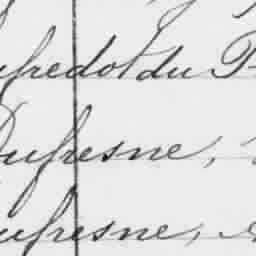 ufredot du P
Dufresne,
ufresne,